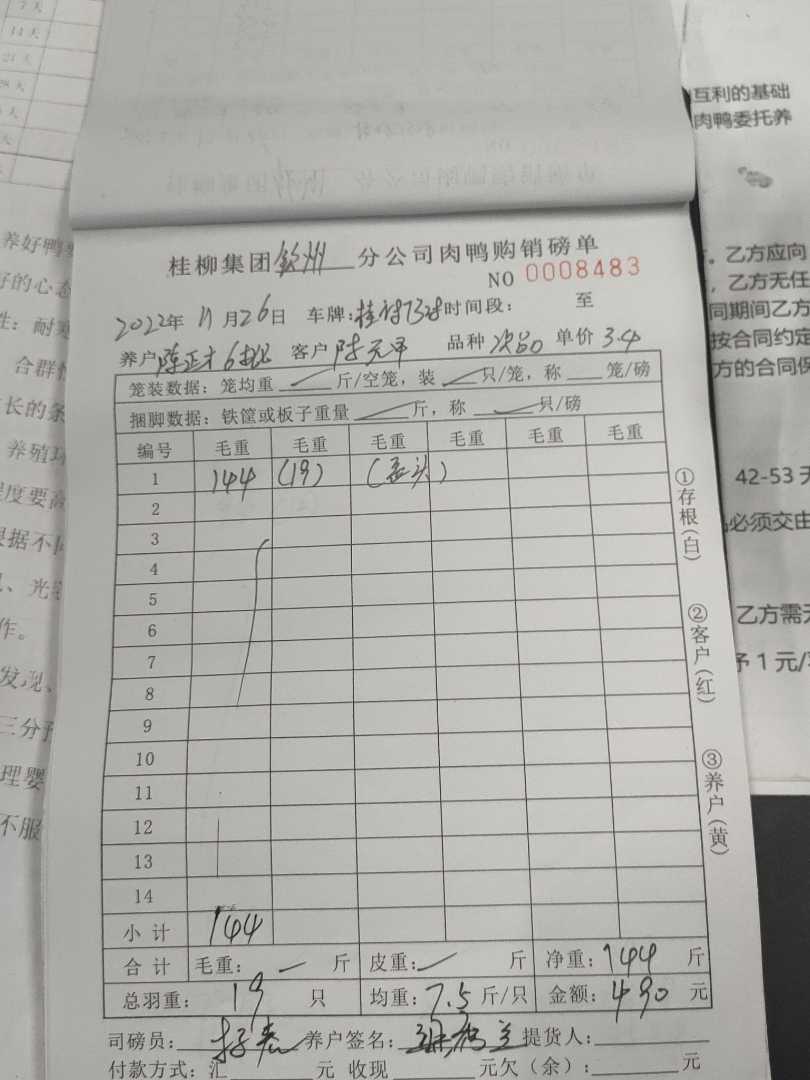 7天
14天
21天
28天
养好鸭
好的心态
性：耐
合群
长的条
养殖环
程度要高
根据不同
、光
作。
发现、
三分
理婴
不服
互利的基础
肉鸭委托养
。乙方应向
，乙方无任
同期间乙方
按合同约定
方的合同保
42-53天
必须交由
乙方需
予1元/
桂柳集团钦州分公司肉鸭购销磅单
NO 0008483
2022年 11月26日 车牌：桂 时间段： 至
养户 陈正才6批 客户 陈天平 品种 次品 单价 3.4
笼装数据：笼均重 斤/空笼，装 只/笼，称 笼/磅
捆脚数据：铁筐或板子重量 斤，称 只/磅
编号 毛重 毛重 毛重 毛重 毛重 毛重
1 144 (19)
2
3
4
5
6
7
8
9
10
11
12
13
14
小计 144
合计 毛重： 斤 皮重： 斤 净重：144 斤
总羽重： 19 只 均重：7.5 斤/只 金额：490 元
司磅员： 养户签名： 提货人：
付款方式：汇 元 收现 元欠（余）： 元
①存根(白)
②客户(红)
③养户(黄)